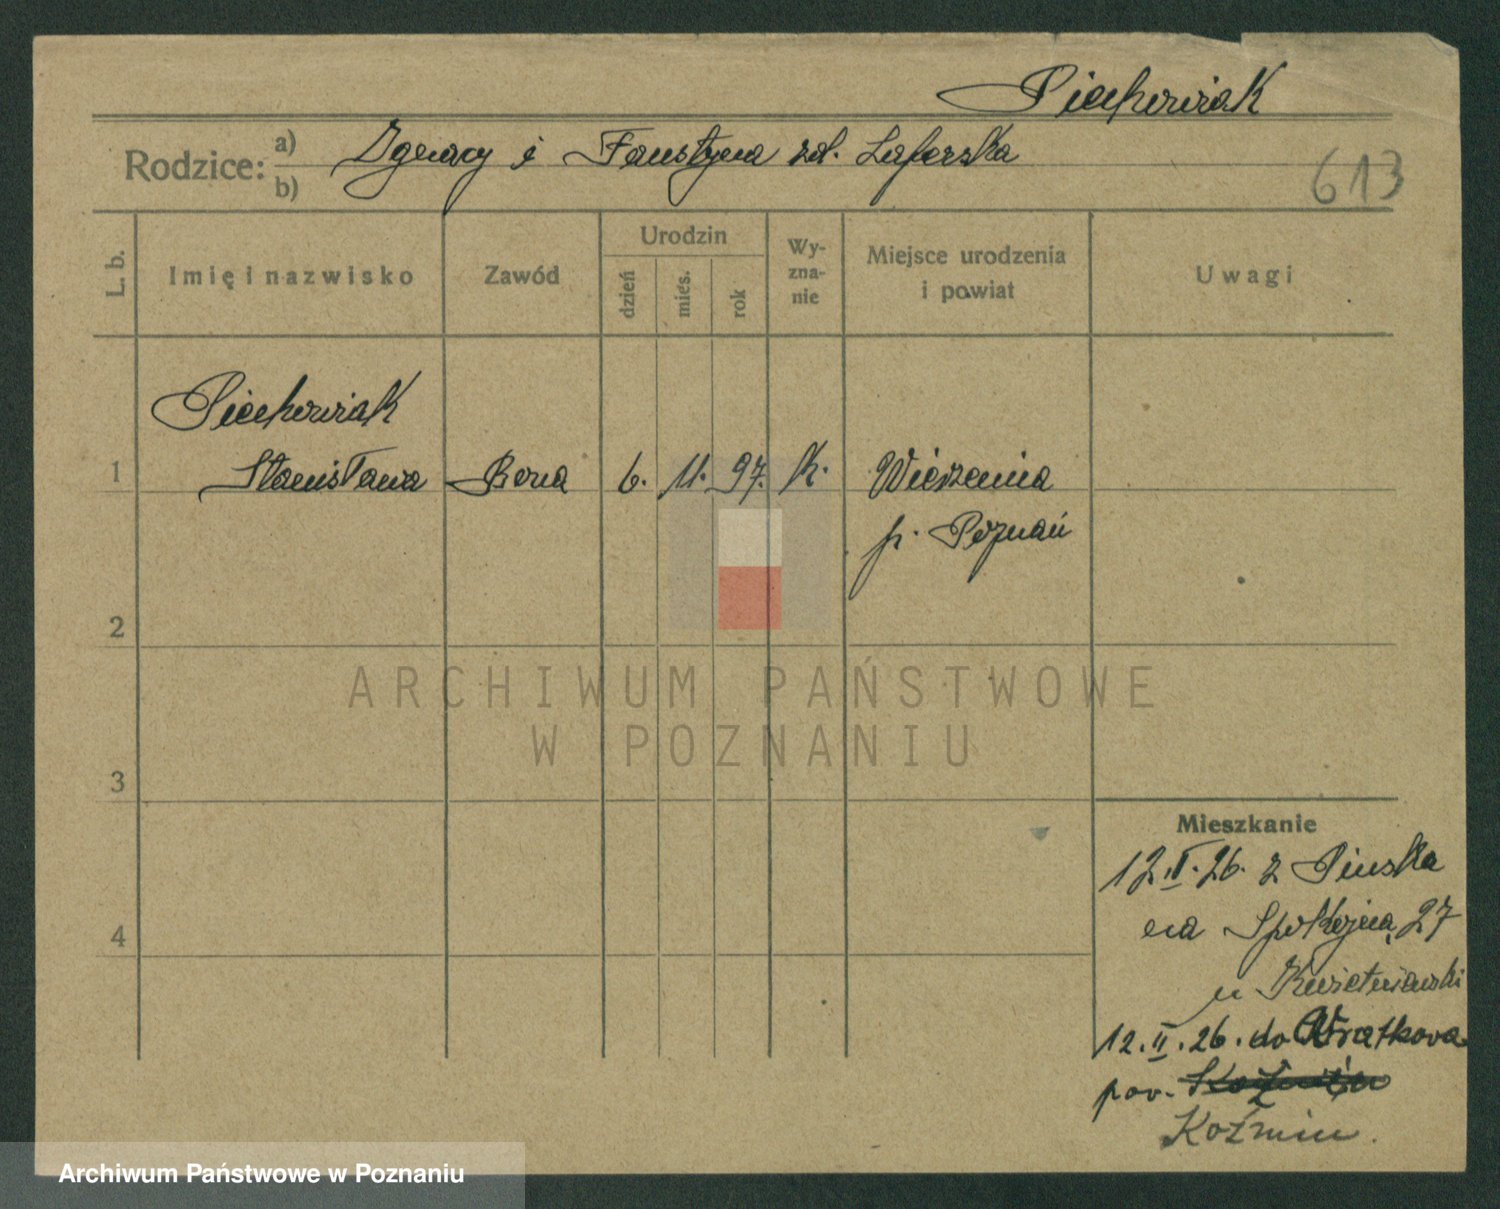 Piechowiak
Rodzice: a) b) Ignacy i Faustyna zd.
613
L. b.
Imię i nazwisko
Zawód
Urodzin
dzień
mies.
rok
Wy-
zna-
nie
Miejsce urodzenia
i powiat
Uwagi
Piechowiak
1 Stanisława Bona 6. 11. 97. k. Wierzenica
p. Poznań
2
3
4
ARCHIWUM PAŃSTWOWE
W POZNANIU
Mieszkanie
12.II.26. z Pinska
na Spokojną 27
u Kwietniewski
12.II.26. do
pow.
Koźmin.
Archiwum Państwowe w Poznaniu